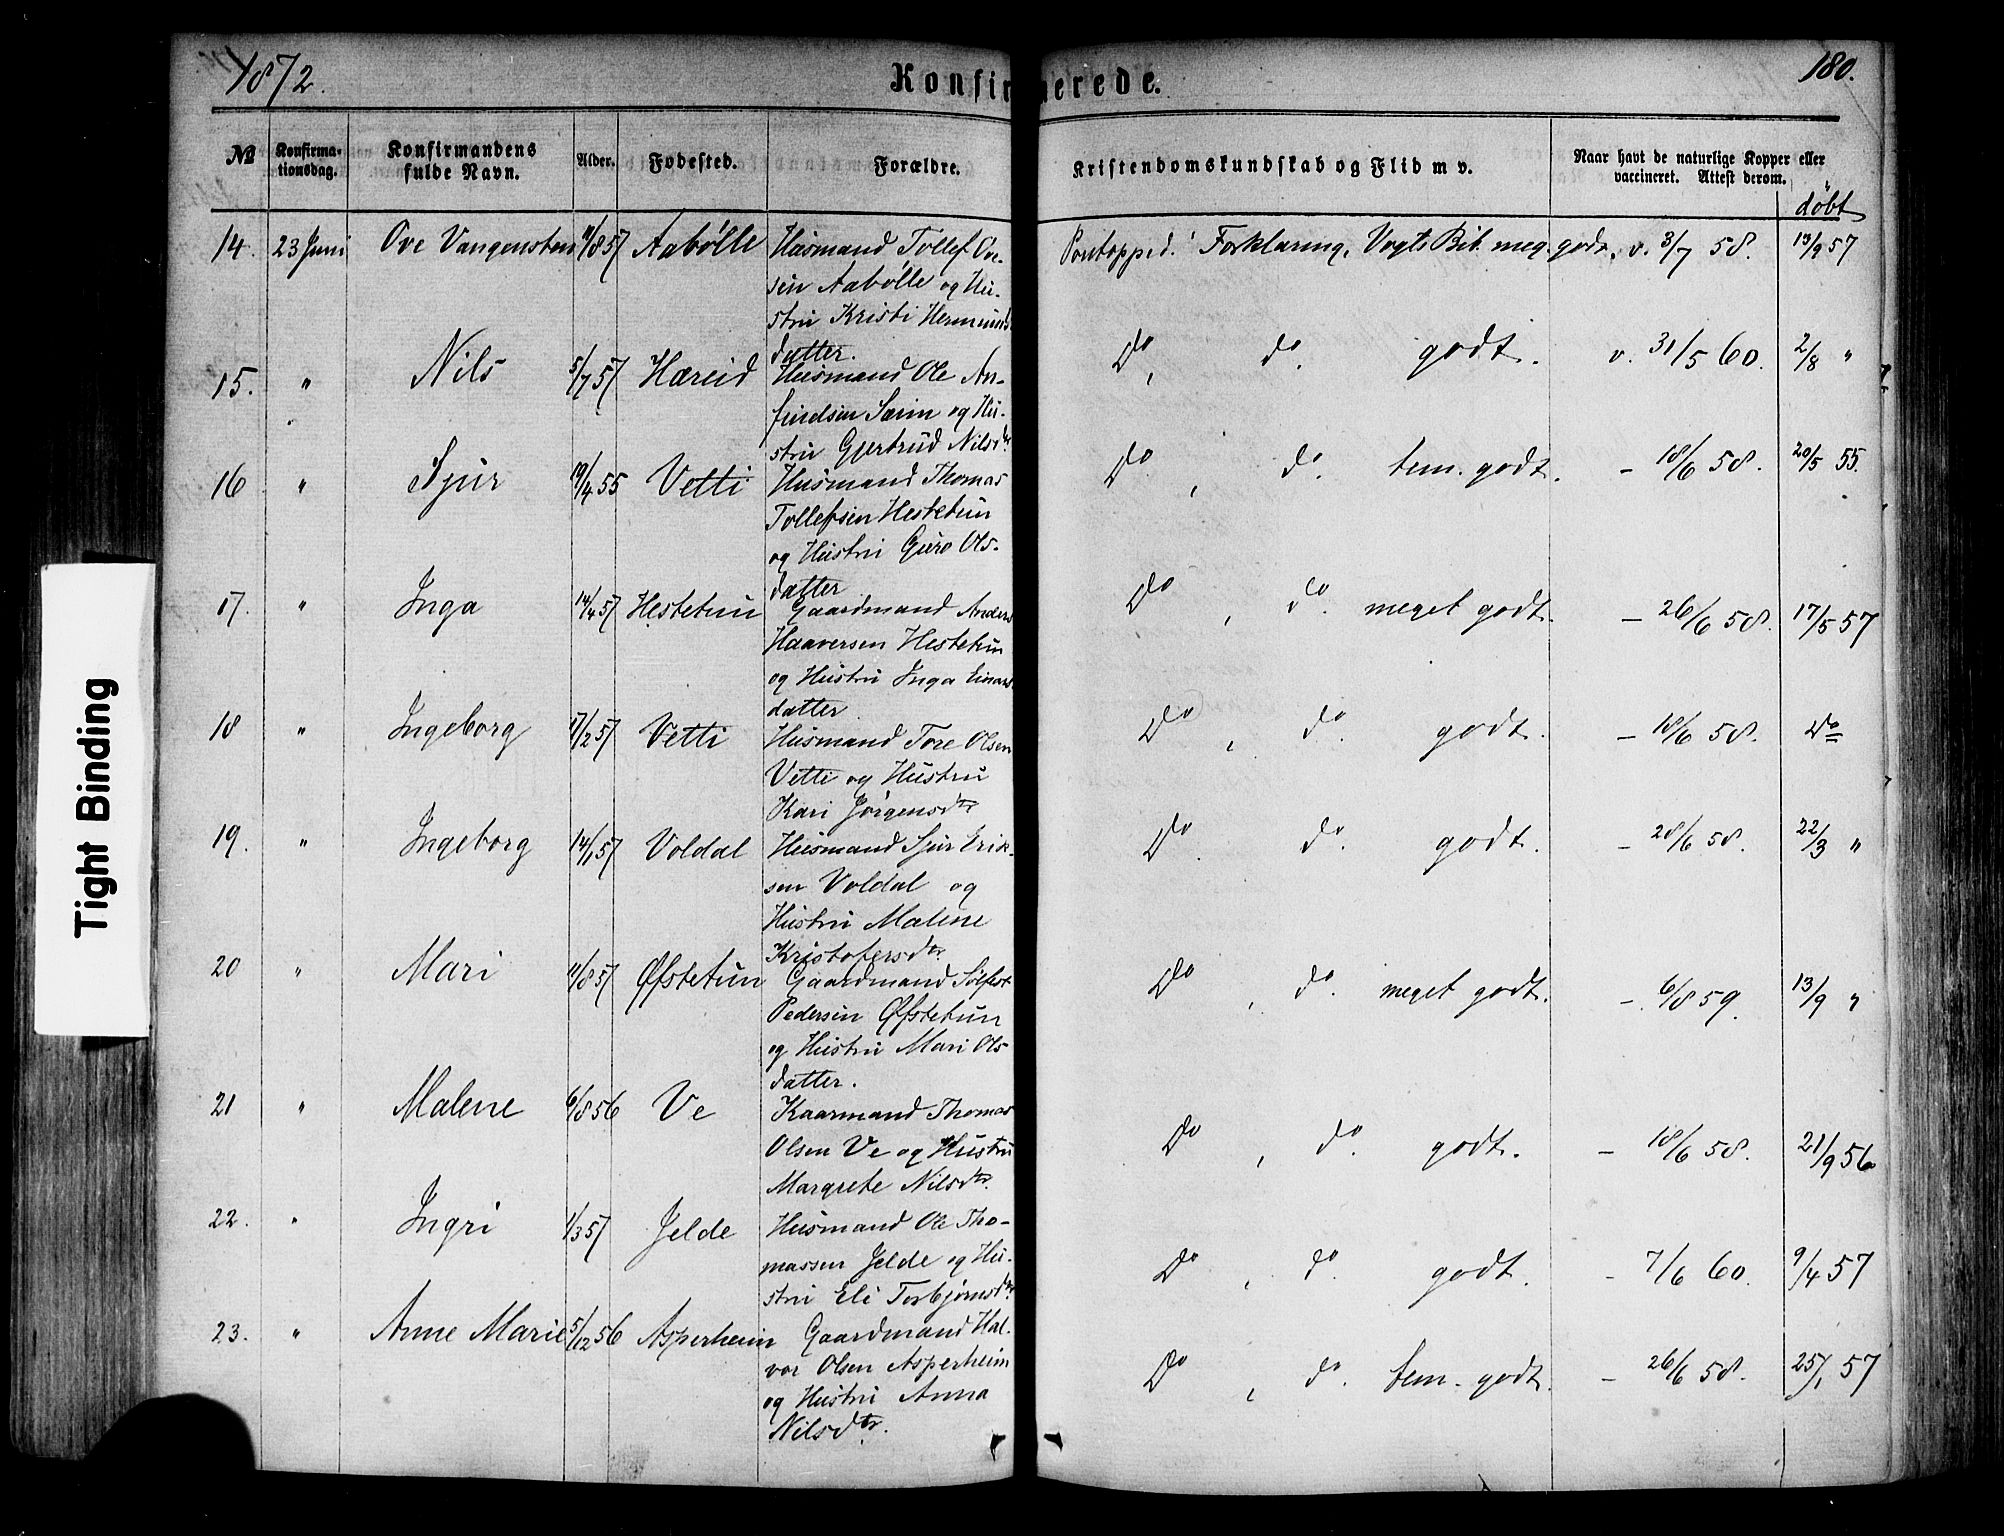 1872.
Konfirmerede.
180.
No Konfirmationsdag. Konfirmandens fulde Navn. Alder. Fødested. Forældre. Kristendomskundskab og Flid m v. Naar havt de naturlige Kopper eller vaccineret. Attest derom. døbt
14. 23 Juni Ove Vangensten 11/8 57 Aabølle Husmand Tollef Ove- Pontopped.' Forklaring, Vogts Bib. meg. godt. v. 3/7 58. 13/9 57
sen Aabølle og Hu-
stru Kristi Hermunds
datter.
15. " Nils 5/7 57 Hæreid Husmand Ole An- Do, do godt. v. 31/5 60. 2/8 "
findsen Sæim og Hu-
stru Gjertrud Nilsdtr
16 " Sjur 19/4 55 Vetti Husmand Thomas Do, do. tem. godt. - 18/6 58. 20/5 55.
Tollefsen Hestetun
og Hustru Guro Ols-
datter
17. " Inga 14/4 57 Hestetun Gaardmand Anders Do, do. meget godt. - 26/6 58. 17/5 57
Haaversen Hestetun
og Hustru Inga Einars
datter
18 " Ingeborg 17/2 57 Vetti Husmand Tore Olsen Do, do. godt. - 18/6 58. Do
Vetti og Hustru
Kari Jørgensdtr
19. " Ingeborg 14/1 57 Voldal Husmand Sjur Erik- Do. do. godt. - 28/6 58. 22/3 "
sen Voldal og
Hustru Malene
Kristofersdtr
20 " Mari 11/8 57 Øfstetun Gaardmand Sølfest Do, do. meget godt. - 6/8 59. 13/9 "
Pedersen Øfstetun
og Hustru Mari Ols
datter.
21 " Malene 6/8 56 Ve Kaarmand Thomas Do, do. godt. - 18/6 58. 21/9 56
Olsen Ve og Hustru
Margrete Nilsdtr.
22. " Ingri 1/3 57 Jelde Husmand Ole Tho- Do, do. godt. - 7/6 60. 9/4 57
massen Jelde og Hu-
stru Eli Torbjørnsdtr
23. " Anne Marie 5/12 56 Asperheim Gaardmand Hal- Do, do. tem. godt. - 26/6 58. 25/1 57
vor Olsen Asperheim
og Hustru Anna
Nilsdtr.
Tight Binding